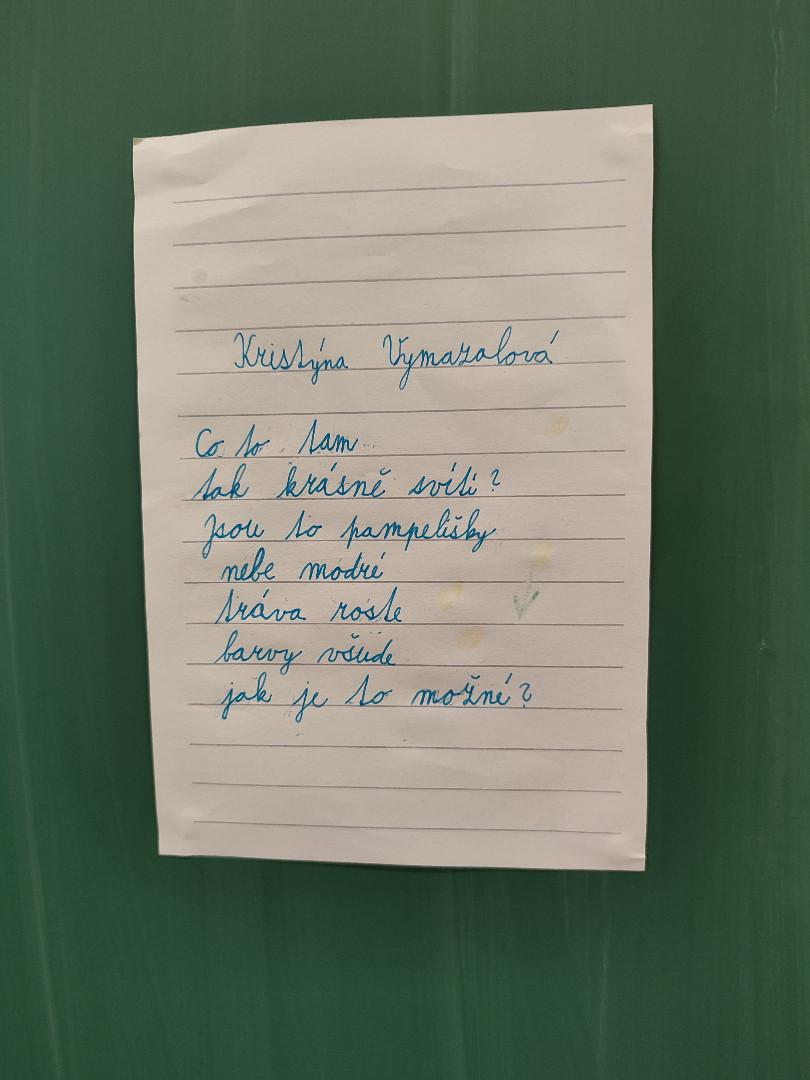 Kristýna Vymazalová
Co to tam
tak krásně svítí?
Jsou to pampelišky
nebe modré
tráva roste
barvy všude
jak je to možné?